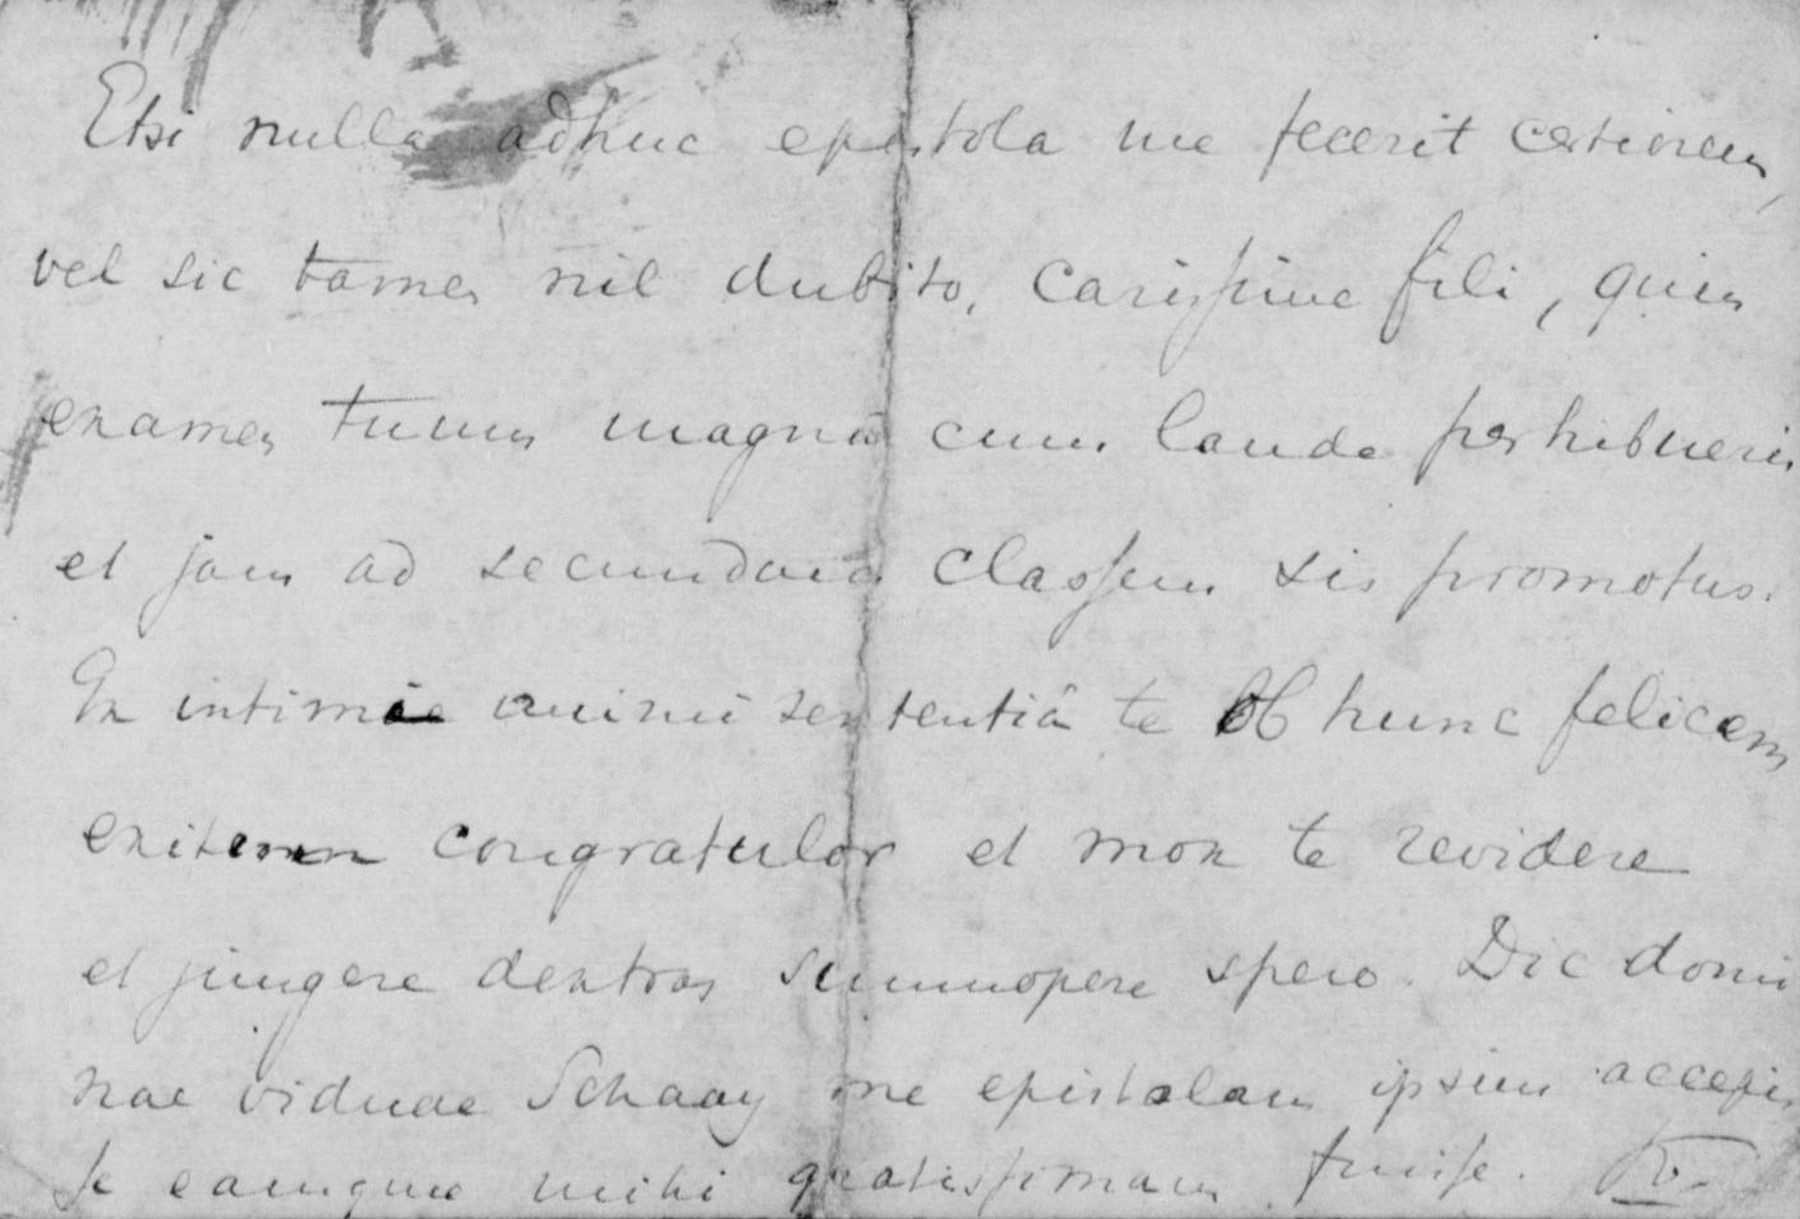 Etsi nulla adhuc epistola me fecerit certiorem,
vel sic tamen nil dubito, carissime fili, quin
examen tuum magnâ cum laude perhibueris
et jam ad secundam classem sis promotus.
Ex intimâ animi sententiâ te ob hunc felicem
exitum congratulor et mox te revidere
et jungere dextras summopere spero. Dic domi
nae viduae Schaay me epistolam ipsius accepis
se eamque mihi gratissimam fuisse.